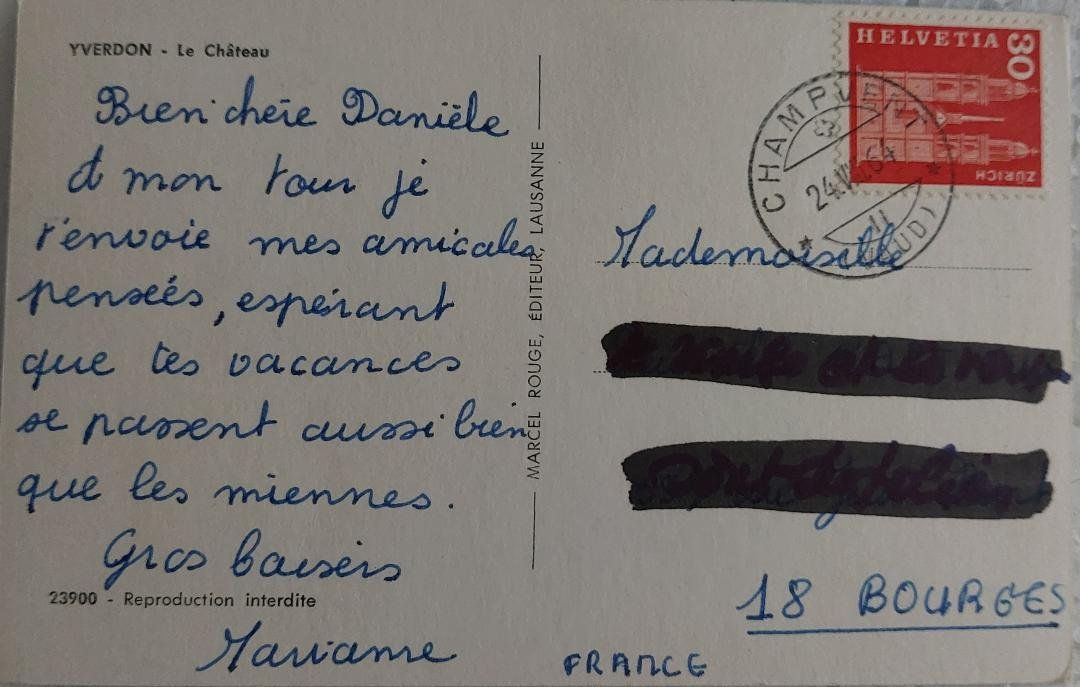 YVERDON - Le Château
Bien chère Danièle
A mon tour je
t'envoie mes amicales
pensées, espérant
que tes vacances
se passent aussi bien
que les miennes.
Gros baisers
23900 - Reproduction interdite
Marianne
MARCEL ROUGE, ÉDITEUR, LAUSANNE
HELVETIA
30
ZÜRICH
CHAMPVENT
(VAUD)
Mademoiselle
18 BOURGES
FRANCE